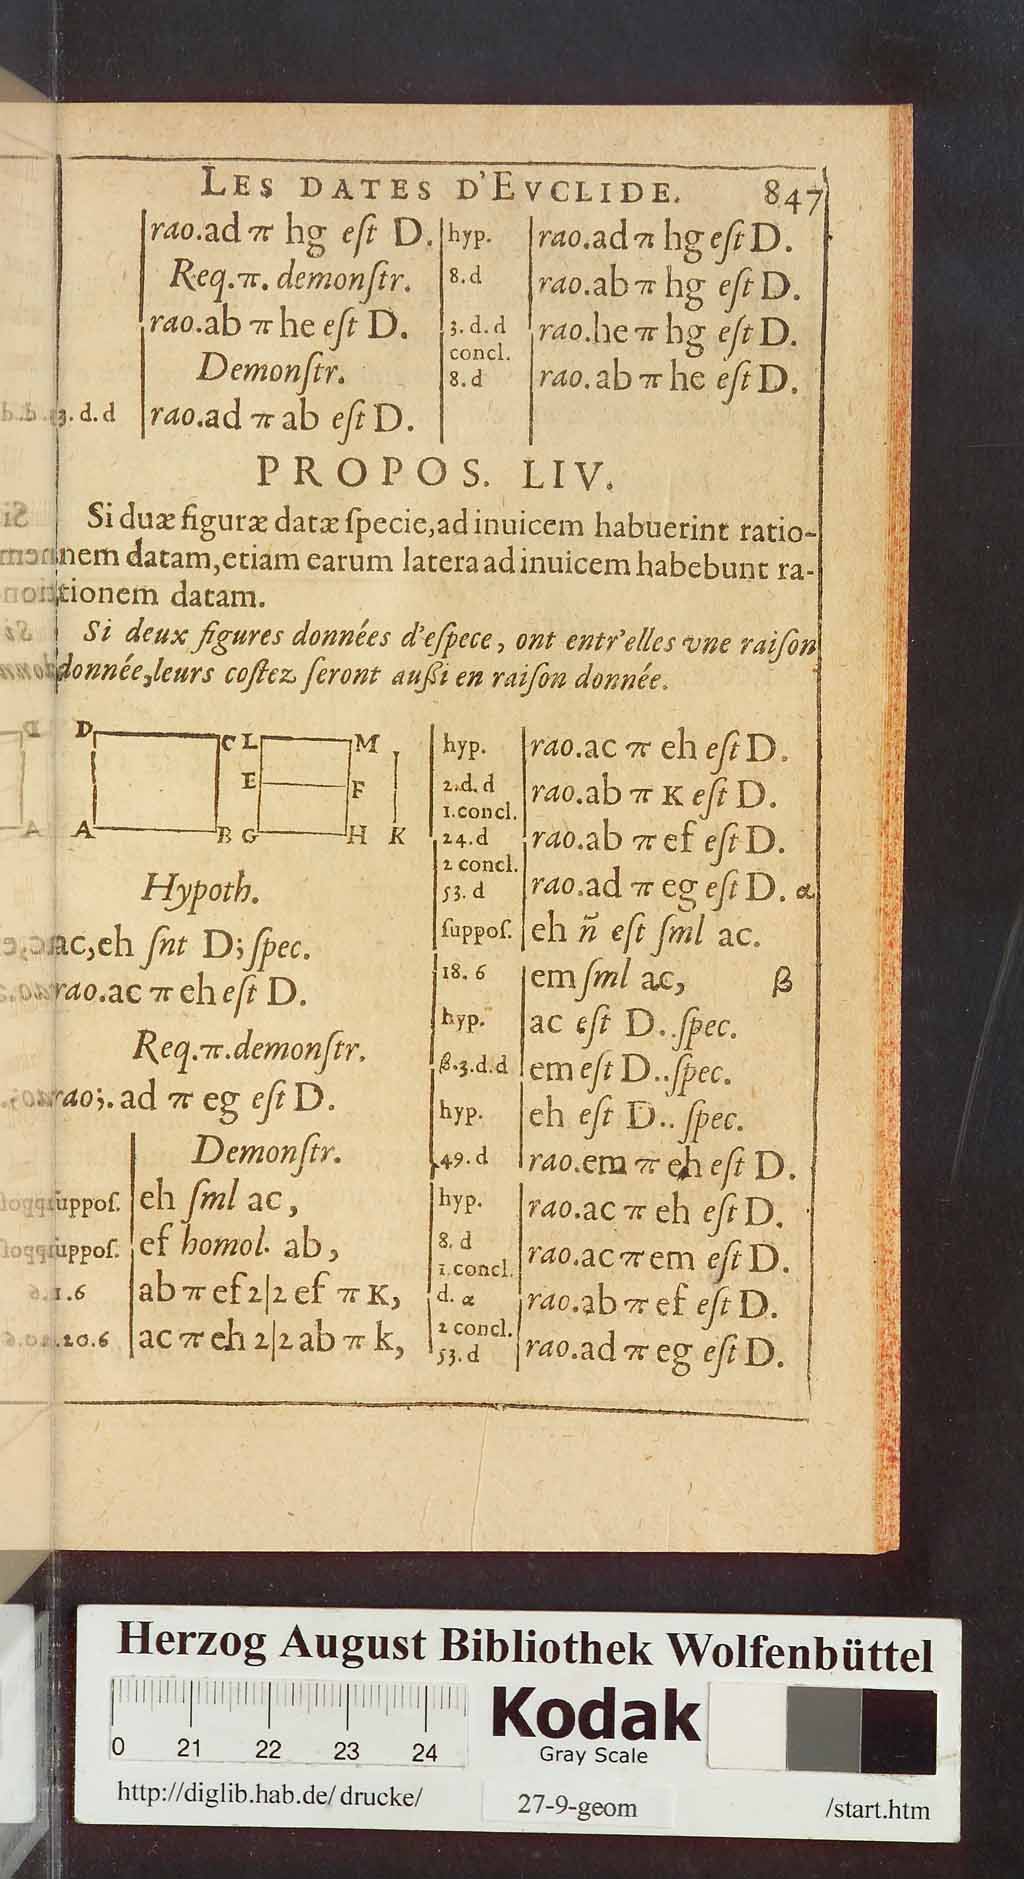 LES DATES D'EVCLIDE. 847
rao.ad π hg eſt D.
Req.π. demonſtr.
rao.ab π he eſt D.
Demonſtr.
3. d. d rao.ad π ab eſt D.
hyp. rao.ad π hg eſt D.
8. d rao.ab π hg eſt D.
3. d. d rao.he π hg eſt D.
concl.
8. d rao. ab π he eſt D.
PROPOS. LIV.
Si duæ figuræ datæ ſpecie, ad inuicem habuerint ratio-
nem datam, etiam earum latera ad inuicem habebunt ra-
tionem datam.
Si deux figures données d'eſpece, ont entr'elles vne raiſon
donnée, leurs coſtez ſeront außi en raiſon donnée.
D C L M
E F
A B G H K
Hypoth.
ac, eh ſnt D; ſpec.
rao.ac π eh eſt D.
Req.π.demonſtr.
rao;. ad π eg eſt D.
Demonſtr.
ſuppoſ. eh ſml ac,
ſuppoſ. ef homol. ab,
1.6 ab π ef 2|2 ef π K,
20.6 ac π eh 2|2 ab π k,
hyp. rao.ac π eh eſt D.
2. d. d rao.ab π K eſt D.
1. concl.
24. d rao.ab π ef eſt D.
2 concl.
53. d rao.ad π eg eſt D. α
ſuppoſ. eh ñ eſt ſml ac.
18. 6 em ſml ac, β
hyp. ac eſt D.. ſpec.
β. 3. d. d em eſt D.. ſpec.
hyp. eh eſt D.. ſpec.
49. d rao.em π eh eſt D.
hyp. rao.ac π eh eſt D.
8. d rao.ac π em eſt D.
1. concl.
d. α rao.ab π ef eſt D.
2 concl.
53. d rao.ad π eg eſt D.
Herzog August Bibliothek Wolfenbüttel
Kodak
Gray Scale
0 21 22 23 24
http://diglib.hab.de/ drucke/ 27-9-geom /start.htm